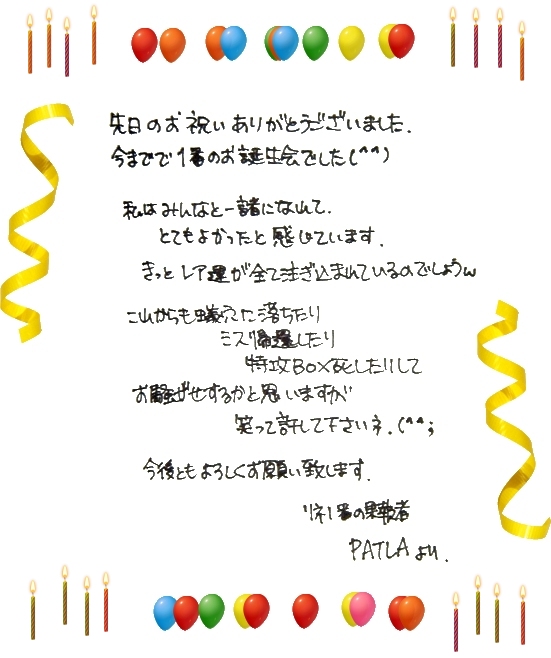 先日のお祝いありがとうございました.
今までで1番のお誕生会でした(^^)
私はみんなと一諸になれて.
とてもよかったと感じています.
きっとレア運が全て注ぎ込まれているのでしょうw
これからも蟻穴に落ちたり
ミズ帰還したり
特攻BOX死したりして
お騒がせするかと思いますが
笑って許して下さいネ.(^^;
今後ともよろしくお願い致します.
リネ1番の果報者
PATLAより.